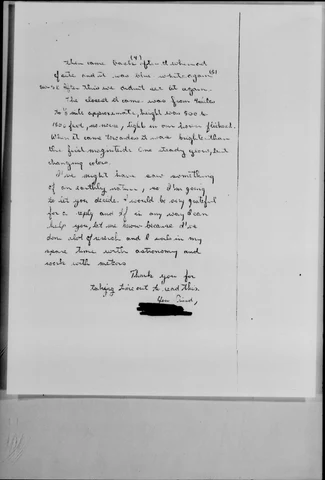 (4)
Then came back after it went out
of site and it was blue white again (5)
After this we didn't see it again.
The closest it came was from 1 mile
to ½ mile approximate, height was 800 to
1500 feet, no noise, light in our house flicked.
When it came broadside it was brighter than
the first magnitude. One steady glow, but
changing colors.
I've might have saw something
of an earthly nature, so I'm going
to let you decide. I would be very grateful
for a reply and if in any way I can
help you, let me know because I've
done alot of research and I work in my
spare time with astronomy and
work with meters.
Thank you for
taking time out to read this.
Your Friend,